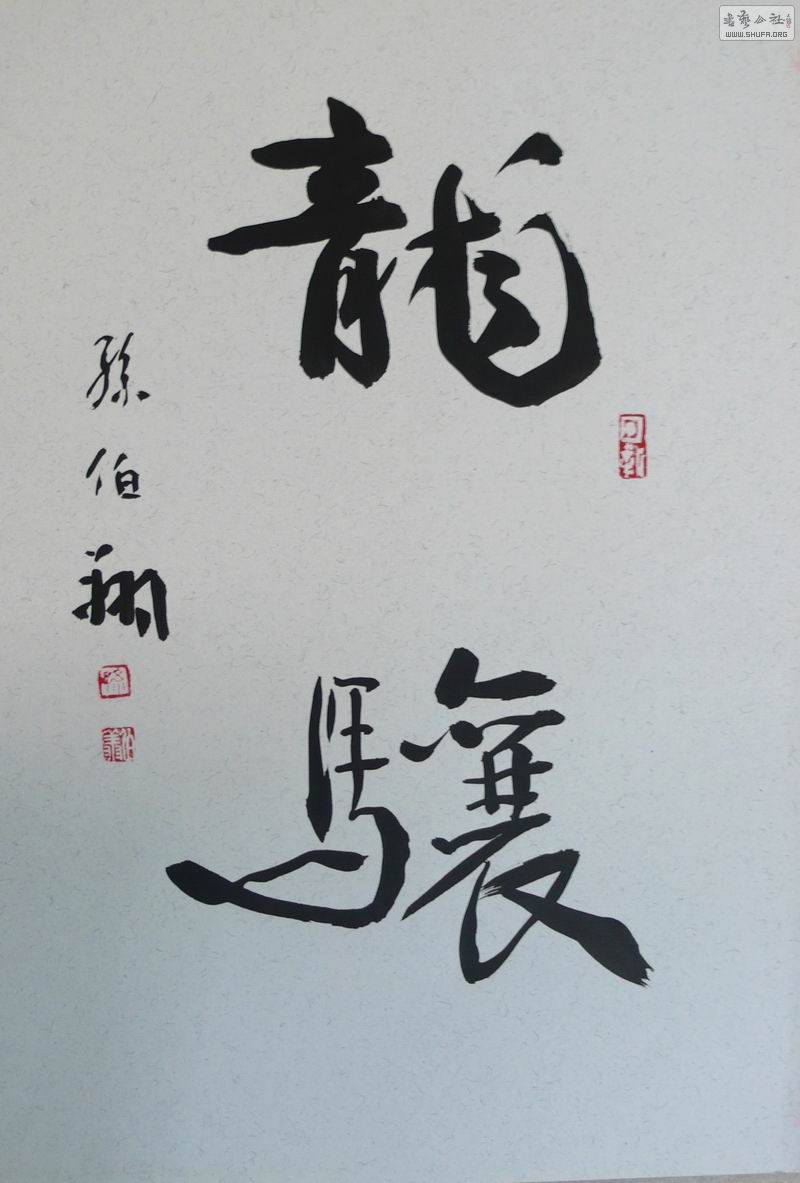 龍
驤
孫伯翔
日新
書藝公社
WWW.SHUFA.ORG